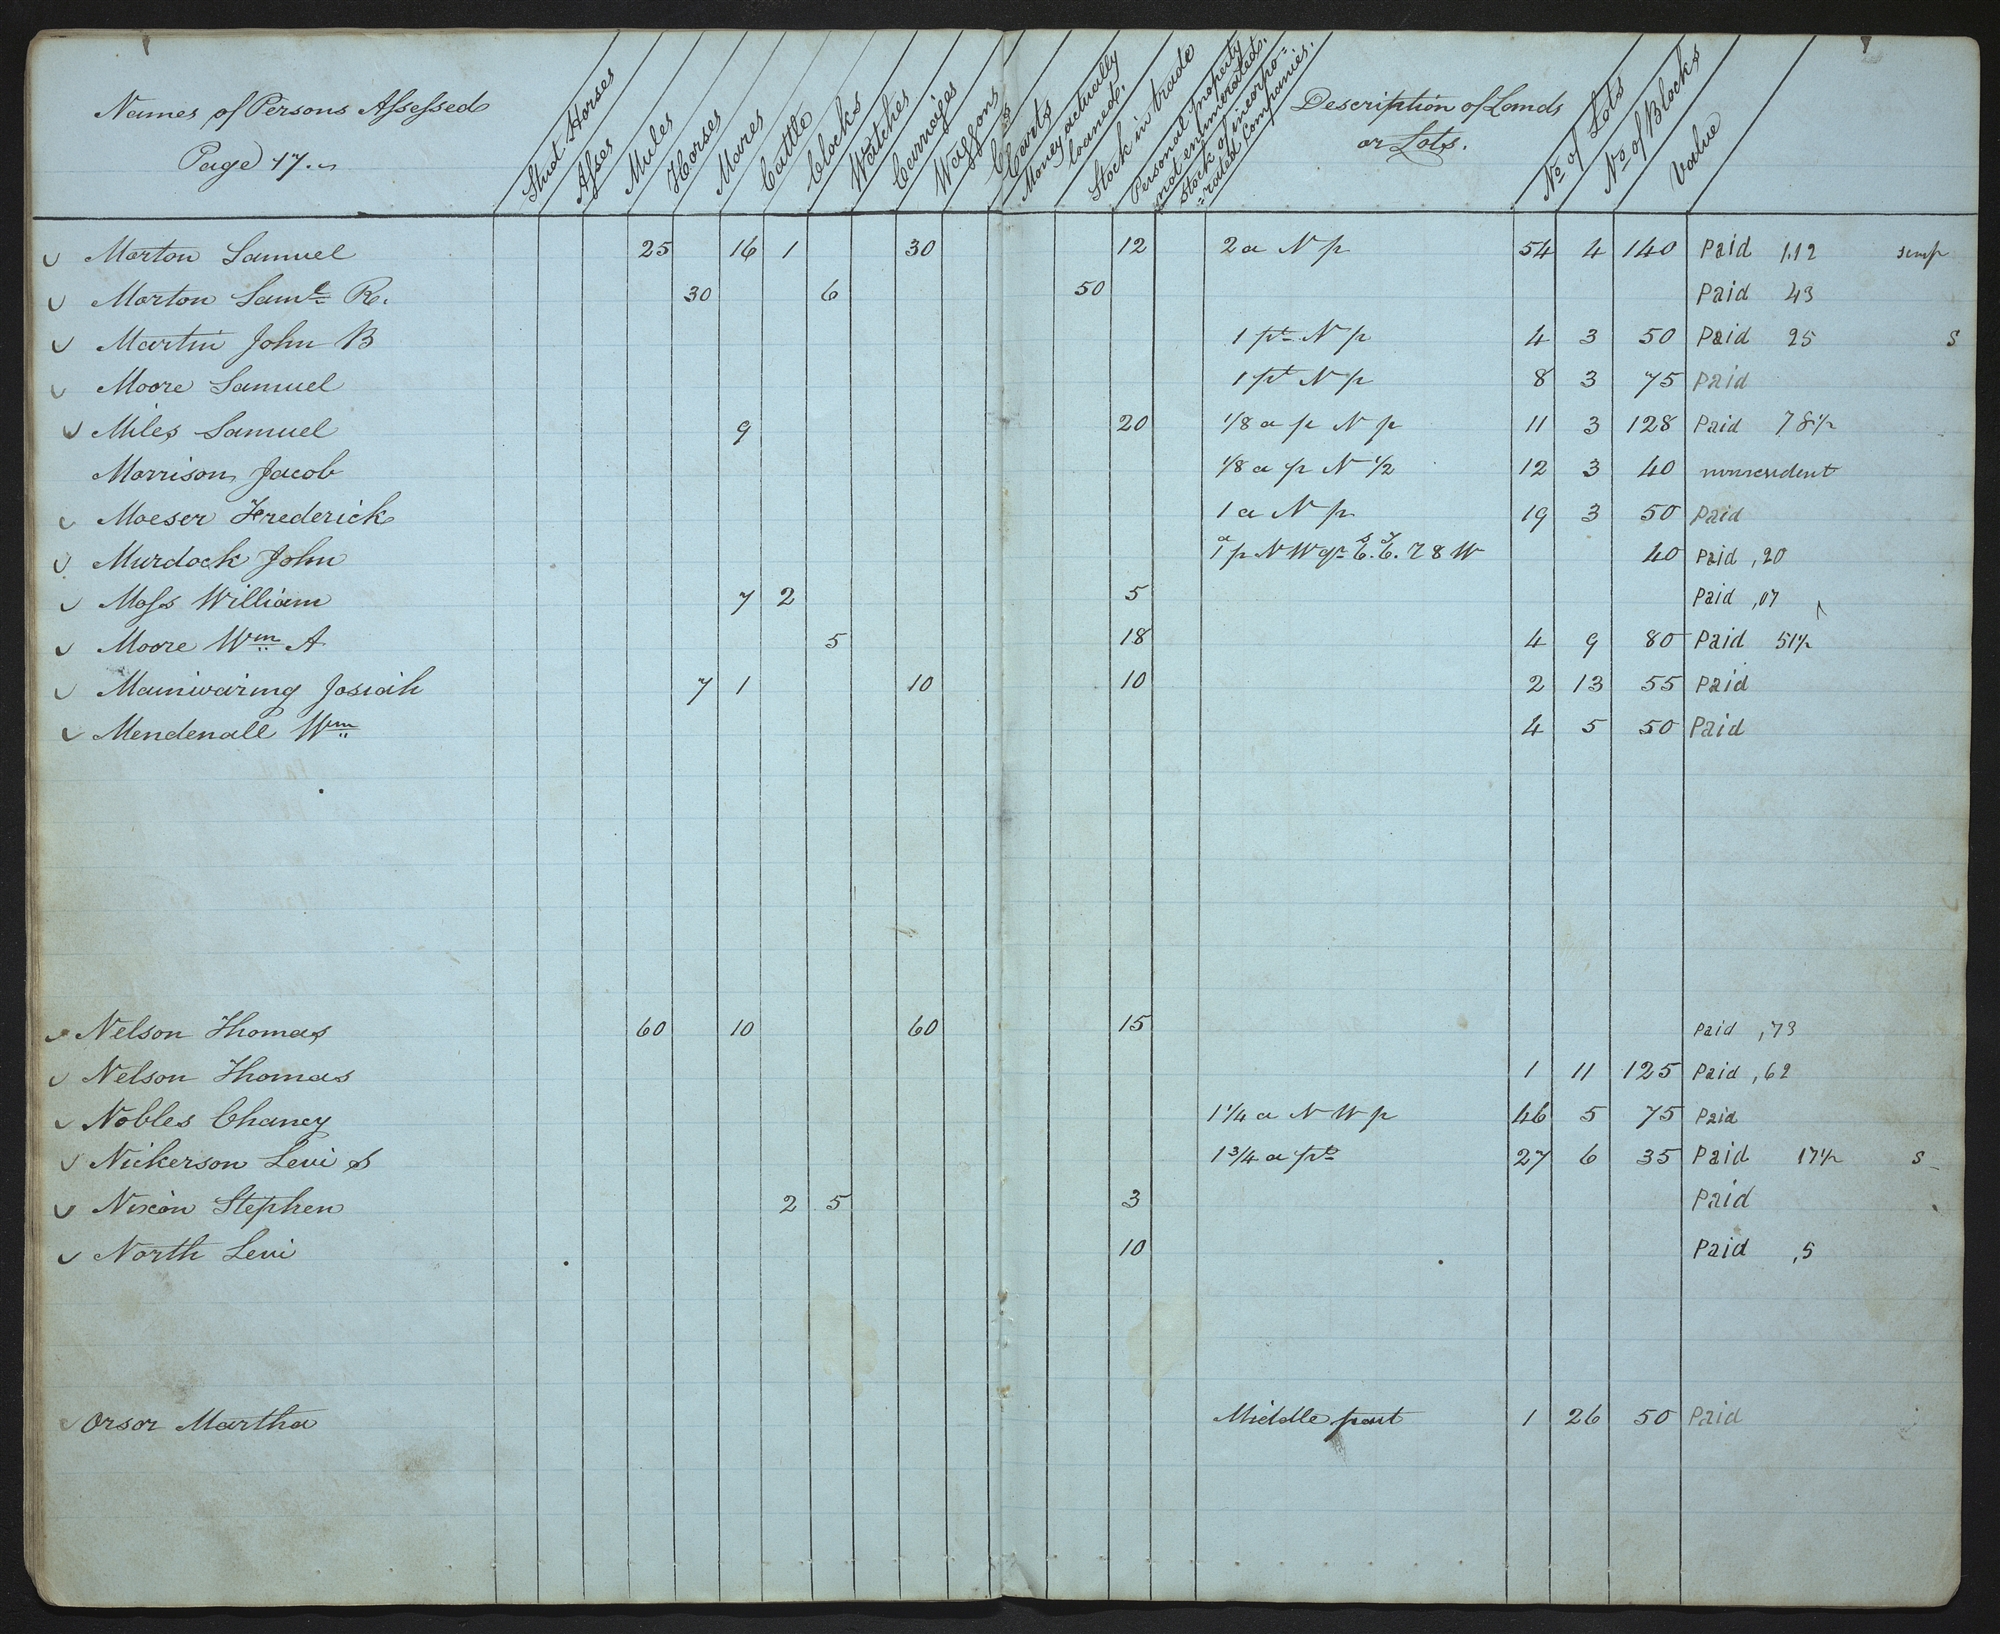 Names of Persons Assessed
Page 17.
Stud Horses
Asses
Mules
Horses
Mares
Cattle
Clocks
Watches
Carraiges
Waggons
Carts
Money actually loaned.
Stock in trade
Personal Property not enumerated.
Stock of incorpo=
=rated Companies.
Description of Lands
or Lots.
No of Lots
No of Blocks
Value
Morton Samuel 25 16 1 30 12 2 a N p 54 4 140 Paid 1.12
Morton Saml R. 30 6 50 Paid 43
Martin John B 1 pt N p 4 3 50 Paid 25 S
Moore Samuel 1 pt N p 8 3 75 Paid
Miles Samuel 9 20 1/8 a p N p 11 3 128 Paid 78½
Morrison Jacob 1/8 a p N 1/2 12 3 40 nonresident
Moeser Frederick 1 a N p 19 3 50 Paid
Murdock John 1 a p N W qr 6. 6. 7 8 W 40 Paid ,20
Moss William 7 2 5 Paid ,07
Moore Wm A 5 18 4 9 80 Paid 51½
Mainwaring Josiah 7 1 10 10 2 13 55 Paid
Mendenall Wm 4 5 50 Paid
Nelson Thomas 60 10 60 15 Paid ,73
Nelson Thomas 1 11 125 Paid ,62
Nobles Chancy 1 1/4 a N W p 46 5 75 Paid
Nickerson Levi S 1 3/4 a pt 27 6 35 Paid 17½ S
Nixon Stephen 2 5 3 Paid
North Levi 10 Paid ,5
Orsor Martha Middle part 1 26 50 Paid